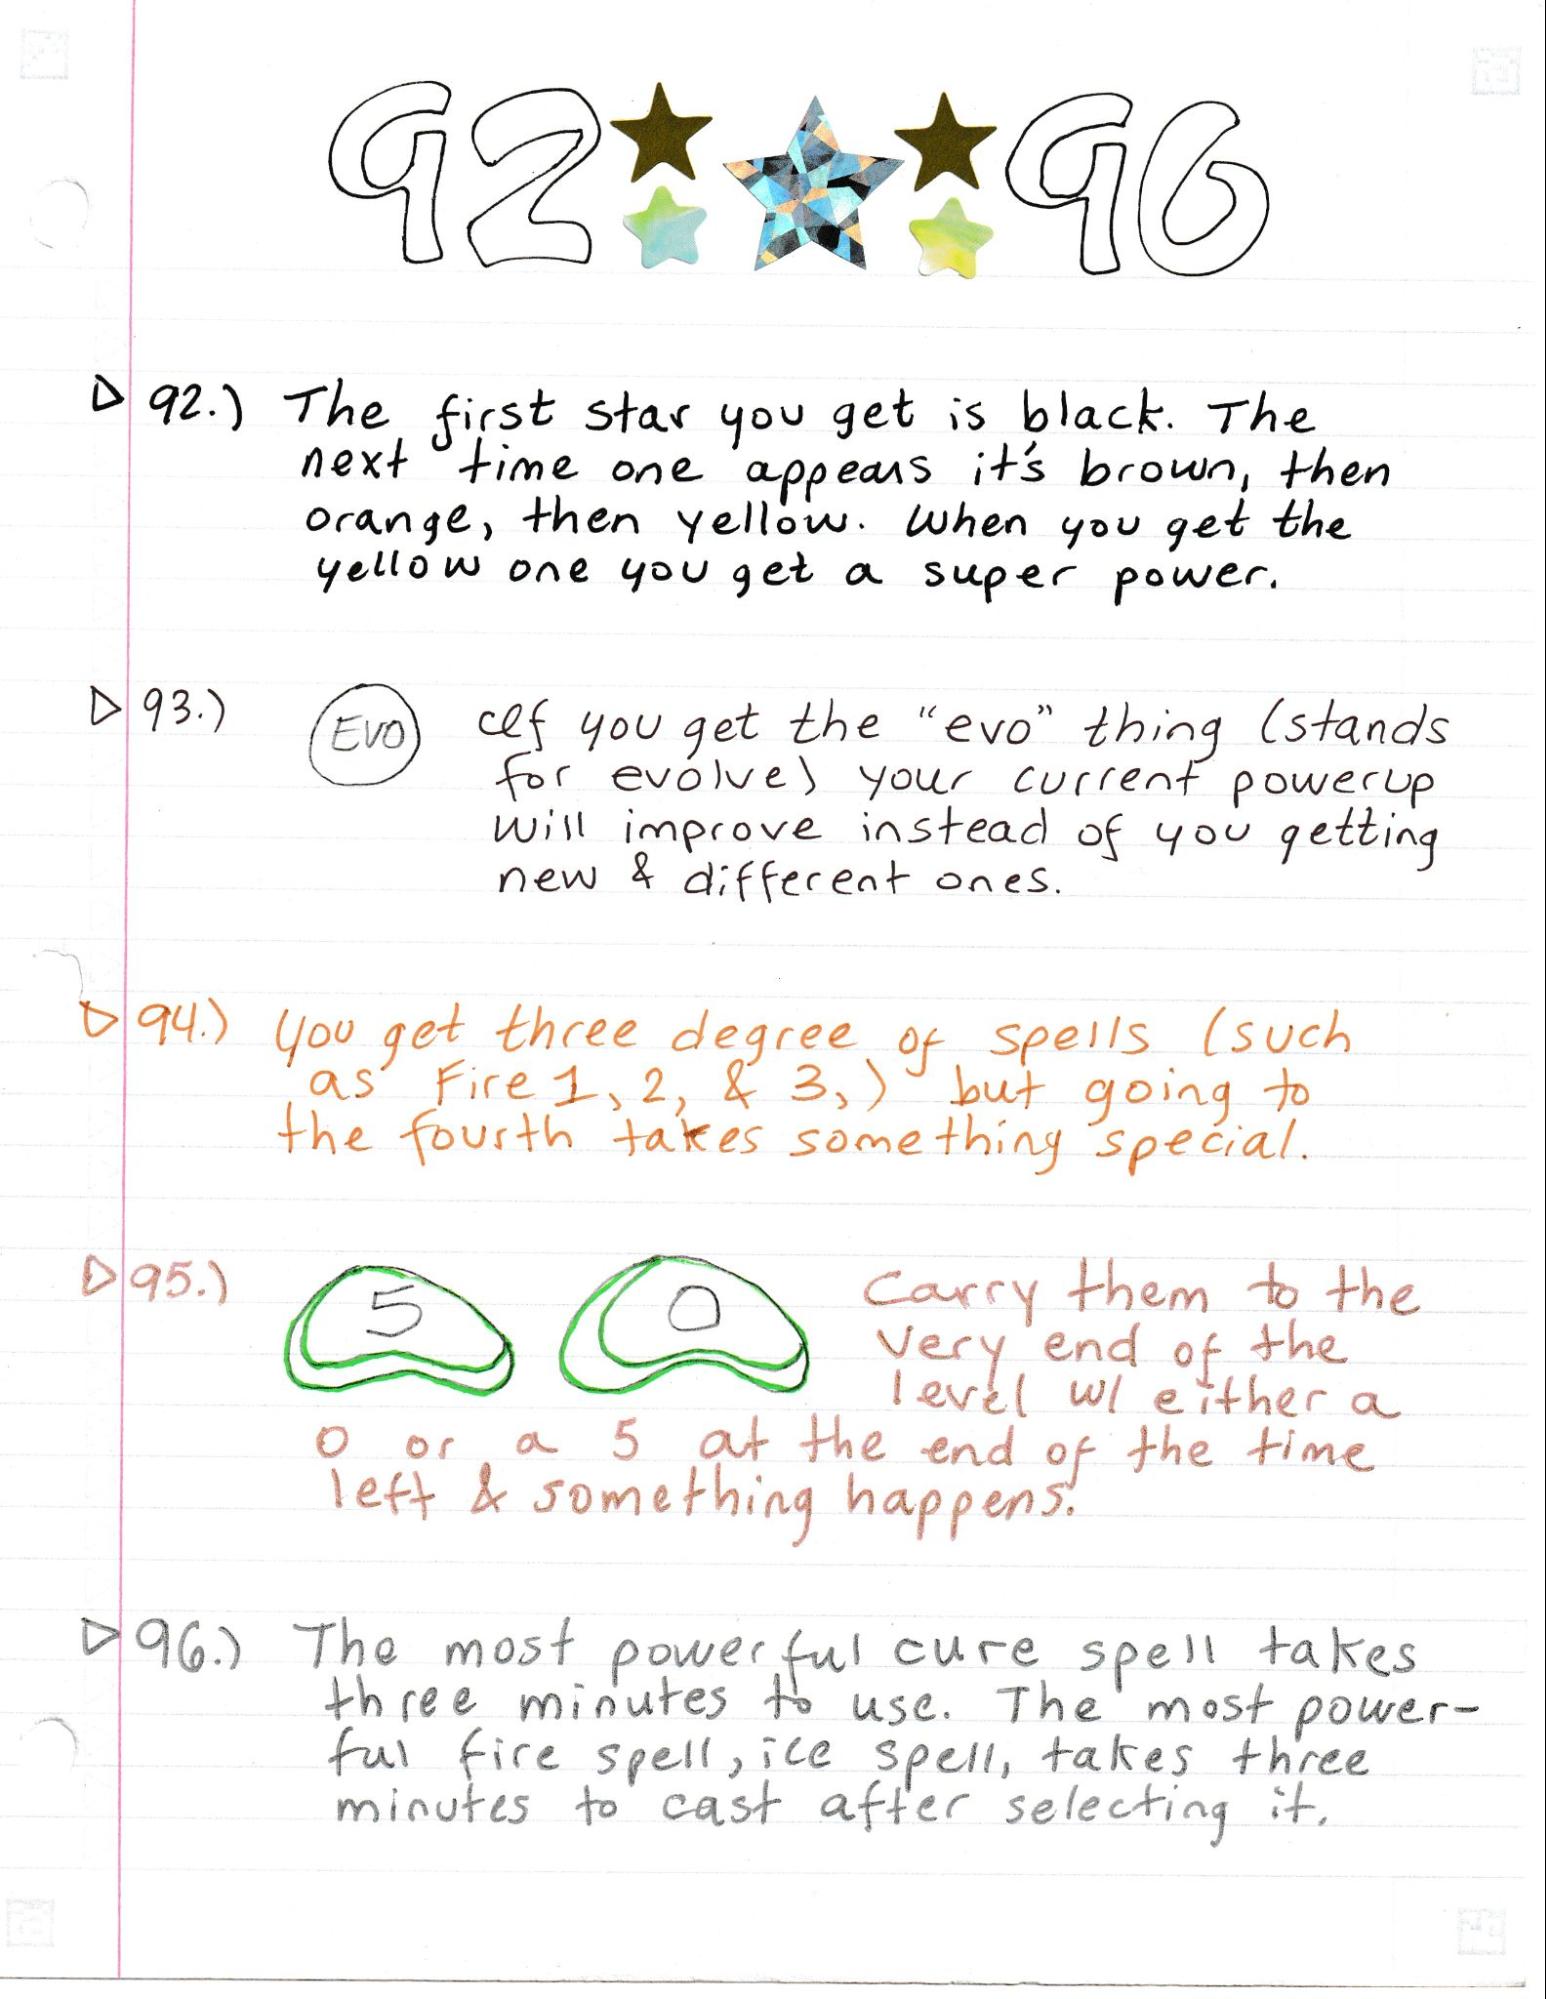 92 96
92.) The first star you get is black. The
next time one appears it's brown, then
orange, then yellow. When you get the
yellow one you get a super power.
93.) EVO If you get the "evo" thing (stands
for evolve) your current powerup
will improve instead of you getting
new & different ones.
94.) You get three degree of spells (such
as Fire 1, 2, & 3,) but going to
the fourth takes something special.
95.) 5 0 Carry them to the
very end of the
level w/ either a
0 or a 5 at the end of the time
left & something happens.
96.) The most powerful cure spell takes
three minutes to use. The most power-
ful fire spell, ice spell, takes three
minutes to cast after selecting it.